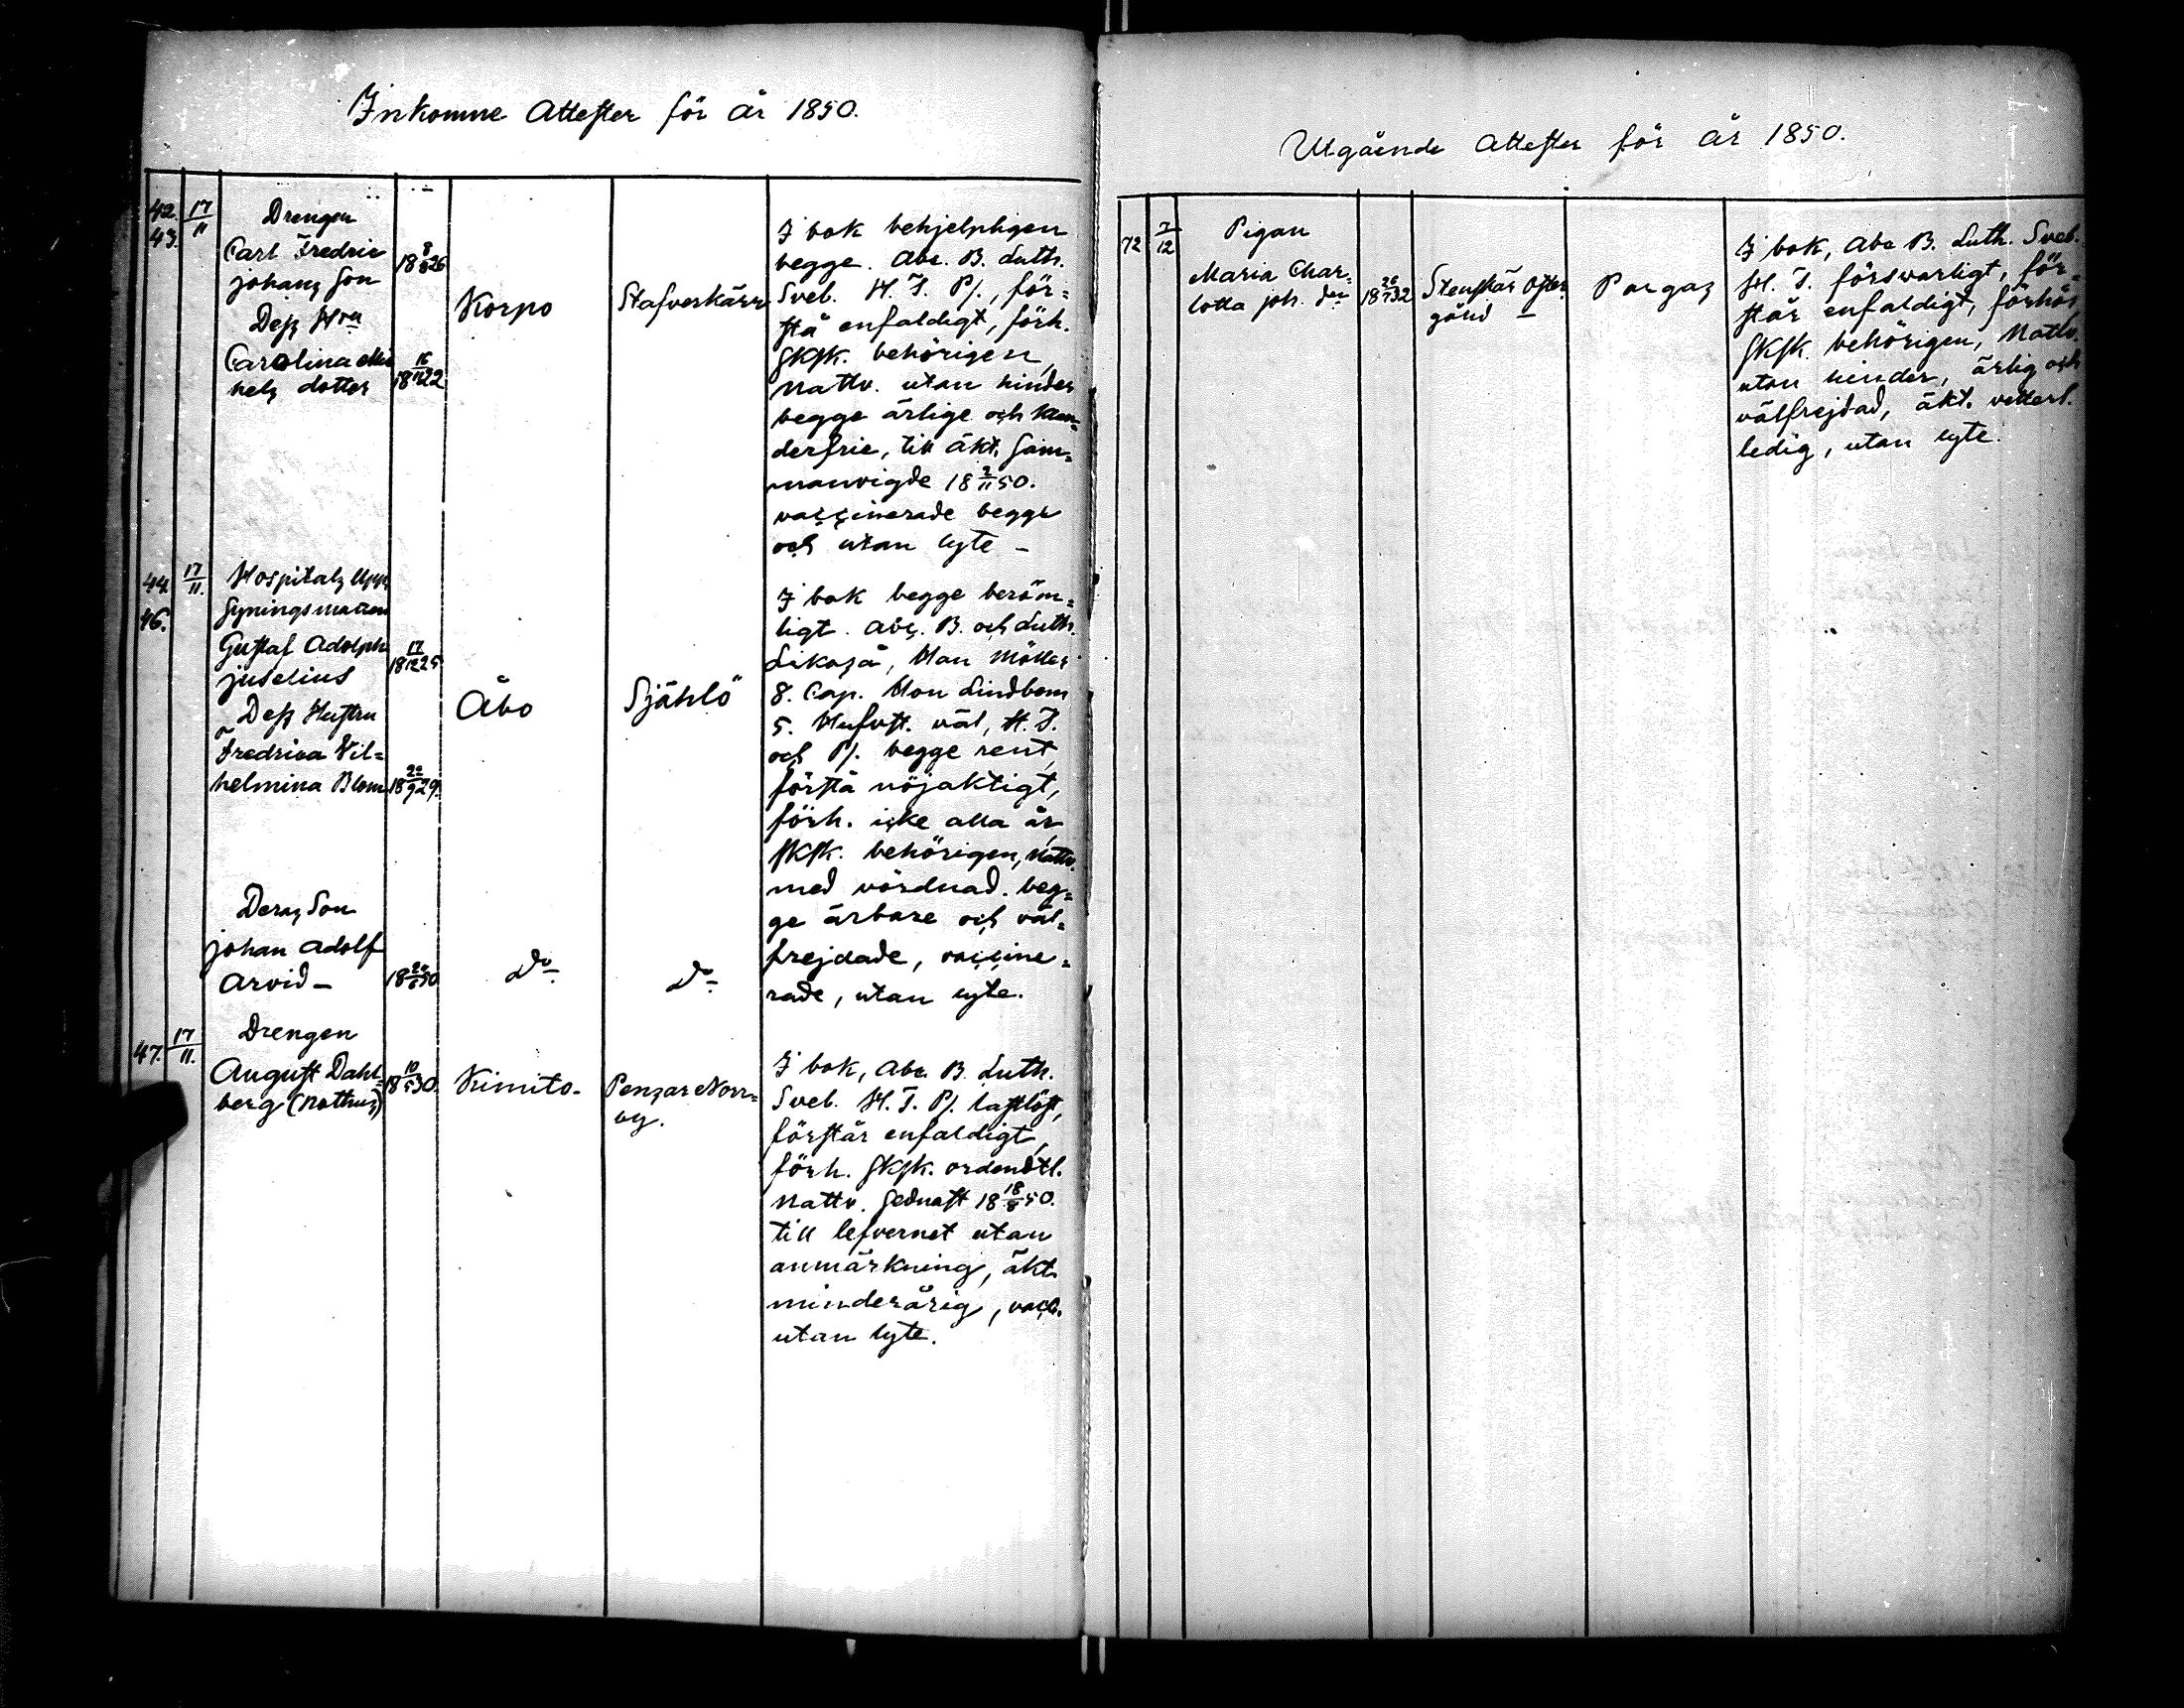 Inkomne Attester för år 1850.
42. 17/11 Drengen
43. Carl Fredric 18 8/8 26
johans Son
Dess Hru
Carolina Mic
hels dotter
Korpo
Stafverskärr
I bok behjelpligen
begge. Abc. B. Luth.
Sveb. H. T. Ps., för=
stå enfaldigt, förh.
skft. behörigen,
Nattv. utan hinder
begge ärlige och klan=
derfrie, till äkt. Sam=
manvigde 18 2/11 50.
vaccinerade begge
och utan lyte –
44. 17/11. Hospitals Upp
46. Syningsmannen
Gustaf Adolph
juselius 18 17/12 25
Dess Hustru
Fredrica Vil=
helmina Blom 18 22/9 29.
Åbo
Själö
I bok begge beröm=
ligt. Abc. B. och Luth.
Likaså, Han Möller
8. Cap. Hon Lindbom
5. Hufvst. väl, H. T.
och Ps. begge rent,
förstå nöjaktigt,
förh. icke alla år,
skft. behörigen, Nattv.
med vördnad. beg=
ge ärbare och väl=
frejdade, vaccine=
rade, utan lyte.
Deras Son
johan Adolf
Arvid –
Do
Do
47. 17/11. Drengen
August Dahl=
berg (Nothus) 18 10/5 30.
Kimito.
Pensar Norr=
by.
I bok, Abc. B. Luth.
Sveb. H. T. Ps. lastlöst,
förstår enfaldigt,
förh. skft. ordendtl.
Nattv. sednast 18 18/8 50.
till lefvernet utan
anmärkning, äkt.
minderårig, vacc.
utan lyte.
Utgående Attester för år 1850.
72 7/12 Pigan
Maria Char=
lotta joh. dr
Stenskär Öster
gård
Pargas
I bok, Abc B. Luth. Sveb.
H. T. försvarligt, för=
står enfaldigt, förhör
skft. behörigen, Nattv.
utan hinder, ärlig och
välfrejdad, äkt. vetterl.
ledig, utan lyte.